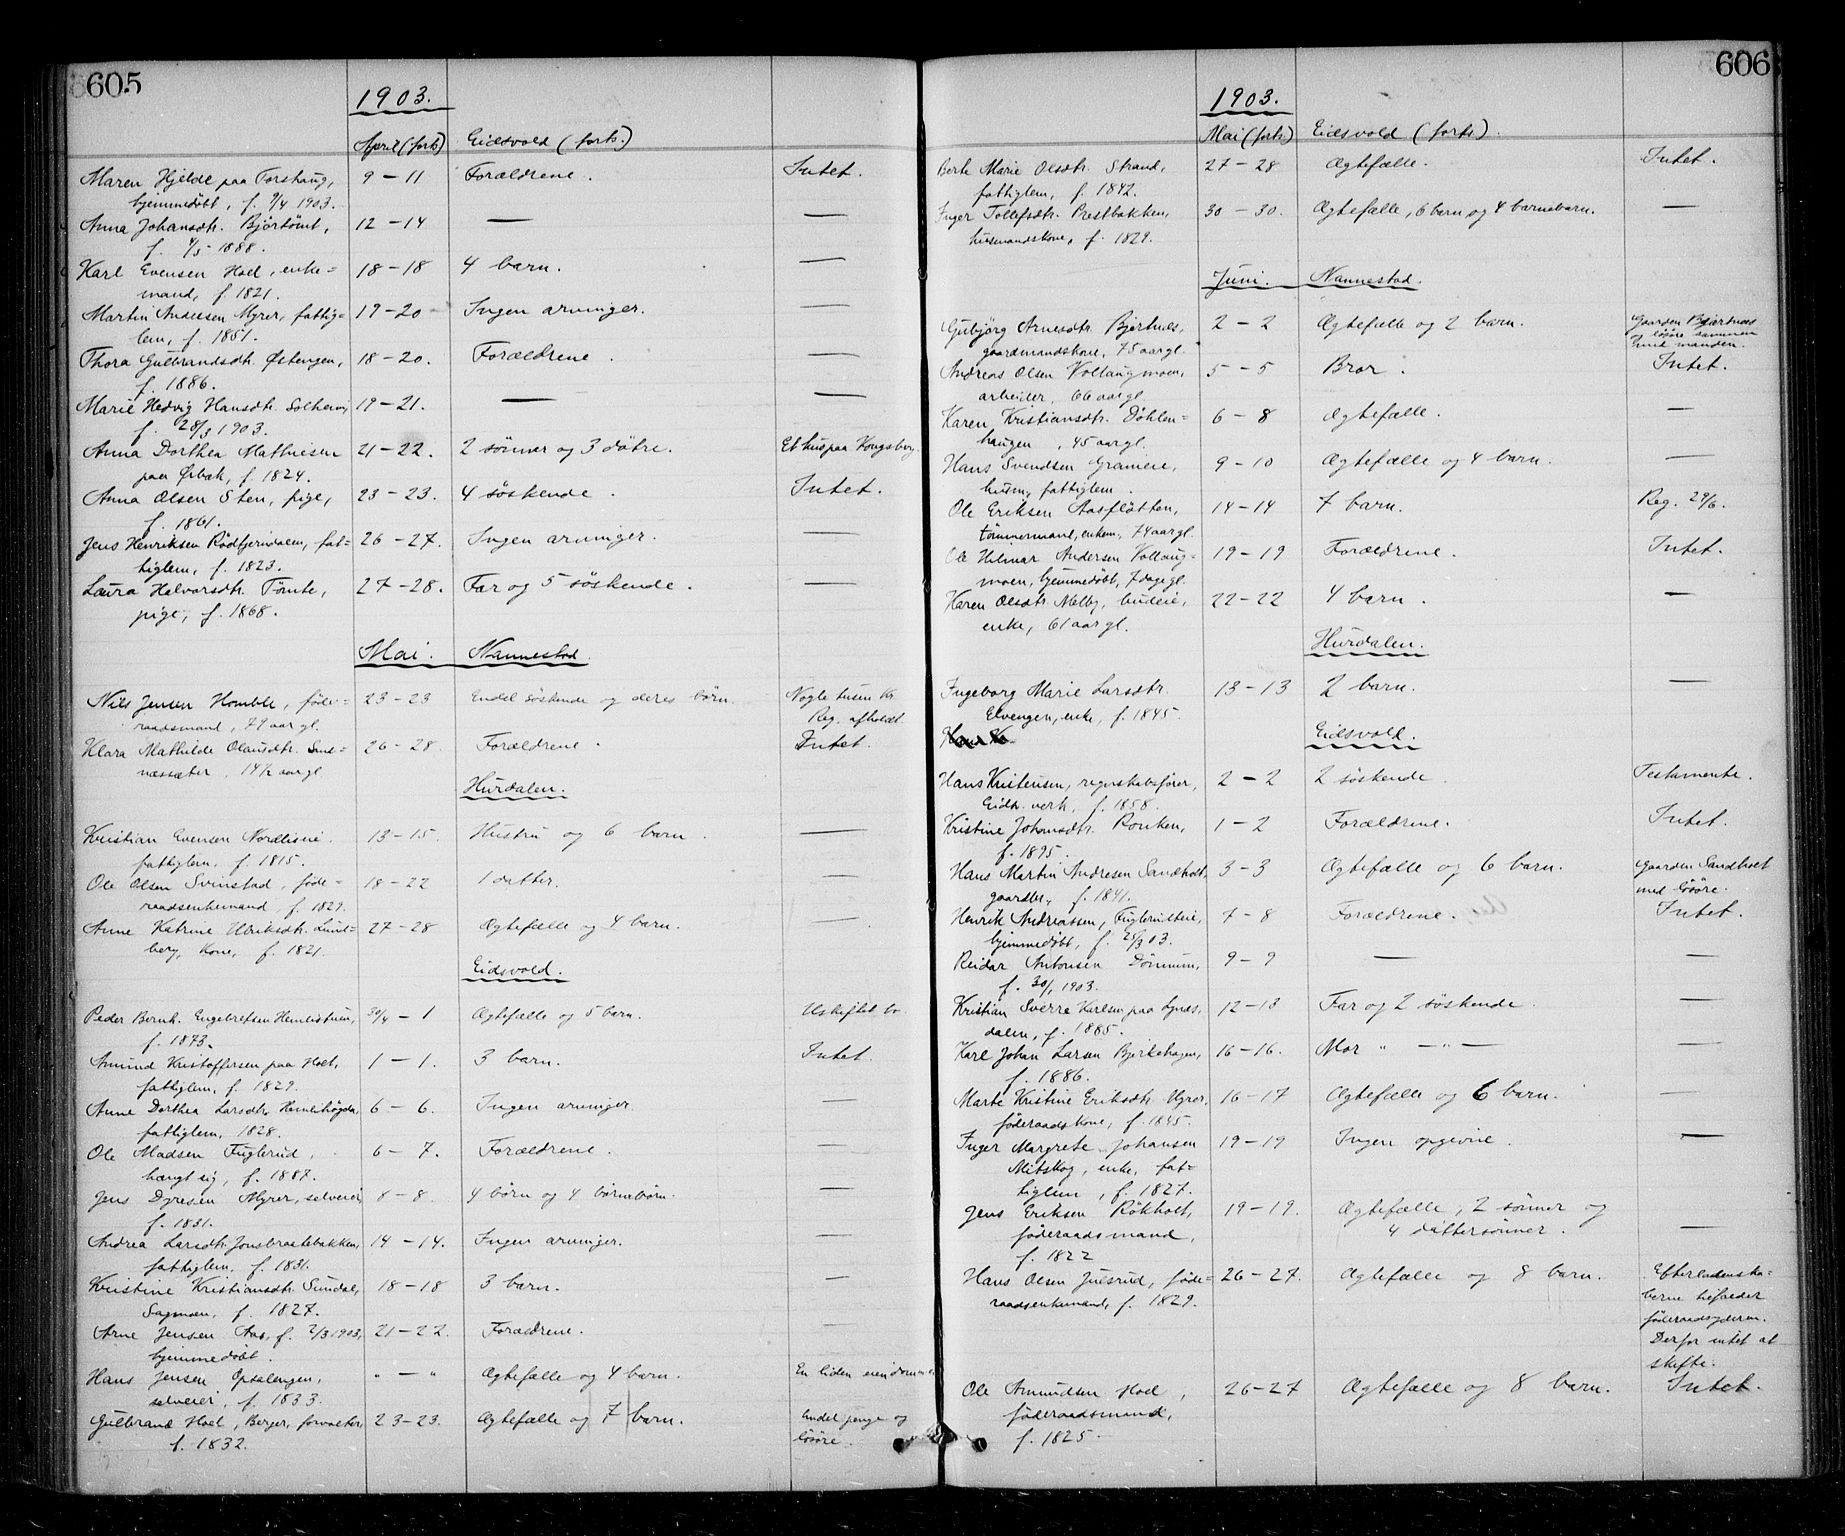 605
1903.
April (forts) Eidsvold (forts.)
Maren Hjelde paa Forshaug, 9 – 11 Forældrene. Intet.
hjemmedøbt, f. 9/4 1903.
Anna Johansdtr. 12 – 14 — —
f. 4/5 1888.
Karl Evensen Hoel, enke= 18 – 18 4 barn. —
mand, f. 1821.
Martin Andersen Myrer, fattig= 19 – 20 Ingen arvinger. —
lem, f. 1851.
Thora Gulbrandsdtr. Østengen, 18 – 20. Forældrene. —
f. 1886.
Marie Hedvig Hansdtr. Solheim, 19 – 21. — —
f. 28/3 1903.
Anna Dorthea Mathiesen 21 – 22. 2 sønner og 3 døtre. Et hus paa Kongsberg.
paa Ørbæk, f. 1824.
Anna Olsen Sten, pige, 23 – 23. 4 søskende. Intet.
f. 1861.
Jens Henriksen fat= 26 – 27. Ingen arvinger. —
tiglem, f. 1823.
Laura Halvorsdtr. Tømte, 27 – 28. Far og 5 søskende. —
pige, f. 1868.
Mai. Nannestad.
Nils Jensen Homble, føde= 23 – 23 Endel søskende og deres børn. Nogle tusen Kr.
raadsmand, 74 aar gl. Reg. afholdt.
Klara Mathilde Olausdtr. 26 – 28. Forældrene. Intet.
næssæter, 14½ aar gl.
Hurdalen.
Kristian Evensen Nordliseie 13 – 15. Hustru og 6 barn. —
fattiglem, f. 1815.
Ole Olsen Svinstad, føde= 18 – 22 1 datter. —
raadsenkemand, f. 1829.
Anne Katrine Ulriksdtr. Lund= 27 – 28 Ægtefælle og 4 barn. —
berg, Kone, f. 1821.
Eidsvold.
Peder Bernh. Engebretsen 30/4 – 1 Ægtefælle og 5 barn. Uskiftet bo
f. 1873.
Amund Kristoffersen paa Hoel, 1 – 1. 3 barn. Intet.
fattiglem, f. 1829.
Anne Dorthea Larsdtr. 6 – 6. Ingen arvinger. —
fattiglem, 1828.
Ole Madsen Fuglerud, 6 – 7. Forældrene. —
hængt sig, f. 1887.
Jens Dyresen Myrer, selveier, 8 – 8. 4 børn og 4 børnebørn. —
f. 1831.
Andrea Larsdtr. Jonsbraatebakken, 14 – 14. Ingen arvinger. —
fattiglem, f. 1831.
Kristine Kristiansdtr. Sundal, 18 – 18 3 barn. —
Sagmoen, f. 1827.
Arne Jensen Aas, f. 2/3 1903, 21 – 22. Forældrene. —
hjemmedøbt.
Hans Jensen Opsalengen, " – " Ægtefælle og 4 barn. En liden eiendom
selveier, f. 1833.
Gulbrand Hoel, Berger, forvalter, 23 – 23. Ægtefælle og 7 barn. Endel penge og
f. 1832. løsøre.
606
1903.
Mai (forts) Eidsvold (forts.).
Berte Marie Olsdtr. Strand, 27 – 28 Ægtefælle. Intet.
fattiglem, f. 1842.
Inger Tollefsdtr. Prestbakken, 30 – 30. Ægtefælle, 6 barn og 4 barnebarn. —
husmandskone, f. 1829.
Juni. Nannestad.
Gubjørg Arnesdtr. Bjertnæs, 2 – 2 Ægtefælle og 2 barn. Gaarden Bjertnæs
gaardmandskone, 75 aar gl. og løsøre sammen
med manden.
Andreas Olsen Vollaugmoen, 5 – 5 Bror. Intet.
arbeider, 66 aar gl.
Karen Kristiansdtr. Døhlen= 6 – 8 Ægtefælle. —
haugen, 45 aar gl.
Hans Svendsen 9 – 10 Ægtefælle og 4 barn. —
husm, fattiglem.
Ole Eriksen Aasfløtten, 14 – 14 7 barn. Reg. 29/6.
tømmermand, enkem, 74 aar gl.
Ole Hilmar Andersen Vollaug= 19 – 19 Forældrene. Intet.
moen, hjemmedøbt, 7 dage gl.
Karen Olsdtr. Melby, budeie, 22 – 22 4 barn. —
enke, 61 aar gl.
Hurdalen.
Ingeborg Marie Larsdtr. 13 – 13 2 barn. —
Elvengen, enke, f. 1845.
Eidsvold.
Hans Kristensen, regnskabsfører, 2 – 2 2 søskende. Testamente.
Eidsv. verk, f. 1858.
Kristine Johansdtr. Ronken, 1 – 2 Forældrene. Intet.
f. 1895.
Hans Martin Andresen Sandholt, 3 – 3 Ægtefælle og 6 barn. Gaarden Sandholt
gaardbr., f. 1841. med løsøre.
Henrik Andreassen, 7 – 8 Forældrene. Intet.
hjemmedøbt, f. 28/3 03.
Reidar Antonsen Dønnum, 9 – 9 — —
f. 30/1 1903.
Kristian Sverre Karlsen paa 12 – 13 Far og 2 søskende. —
dalen, f. 1885.
Karl Johan Larsen Bjerkehagen, 16 – 16. Mor " — " — —
f. 1886.
Marte Kristine Eriksdtr. Myrer, 16 – 17 Ægtefælle og 6 barn. —
føderaadskone, f. 1845.
Inger Margrete Johansen 19 – 19 Ingen opgivne. —
Mitskog, enke, fat=
tiglem, f. 1827.
Jens Eriksen Røkholt, 19 – 19. Ægtefælle, 2 sønner og
føderaadsmand, 4 dattersønner. —
f. 1822
Hans Olsen Julsrud, føde= 26 – 27. Ægtefælle og 8 barn. Efterladenska=
raadsenkemand, f. 1829. berne tilfalder
føderaadsyderen.
Derfor intet at
skifte.
Ole Amundsen Hoel, 26 – 27 Ægtefælle og 8 barn. Intet.
føderaadsmand,
f. 1825.